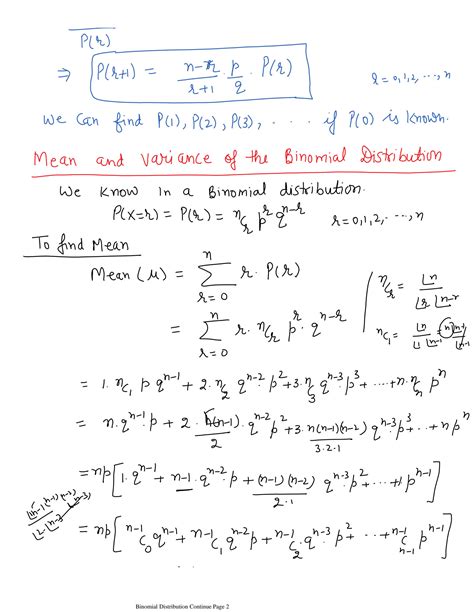 P(r)
⇒ P(r+1) = n-r/r+1 · p/q · P(r)    r = 0,1,2, ..., n
We Can find P(1), P(2), P(3), . . . . if P(0) is known.
Mean and Variance of the Binomial Distribution
We know in a Binomial distribution.
P(X=r) = P(r) = ⁿCᵣ pʳ qⁿ⁻ʳ    r = 0,1,2, ..., n
To find Mean
Mean (μ) = Σ_{r=0}^{n} r · P(r)    ⁿCᵣ = ⌊n / ⌊r ⌊n-r
= Σ_{r=0}^{n} r · ⁿCᵣ pʳ · qⁿ⁻ʳ    ⁿC₁ = ⌊n / ⌊1 ⌊n-1 =
= 1 · ⁿC₁ p qⁿ⁻¹ + 2 · ⁿC₂ qⁿ⁻² · p² + 3 · ⁿC₃ qⁿ⁻³ · p³ + ..... + n · ⁿCₙ pⁿ
= n · qⁿ⁻¹ · p + 2 · n(n-1)/2 · qⁿ⁻² p² + 3 · n(n-1)(n-2)/3·2·1 qⁿ⁻³ p³ + .. + n pⁿ
= np[1 · qⁿ⁻¹ + n-1 · qⁿ⁻² · p + (n-1)(n-2)/2·1 qⁿ⁻³ · p² + .... + 1 · pⁿ⁻¹]
= np[ⁿ⁻¹C₀ qⁿ⁻¹ + ⁿ⁻¹C₁ qⁿ⁻² p + ⁿ⁻¹C₂ qⁿ⁻³ · p² + ... + ⁿ⁻¹Cₙ₋₁ pⁿ⁻¹]
Binomial Distribution Continue Page 2